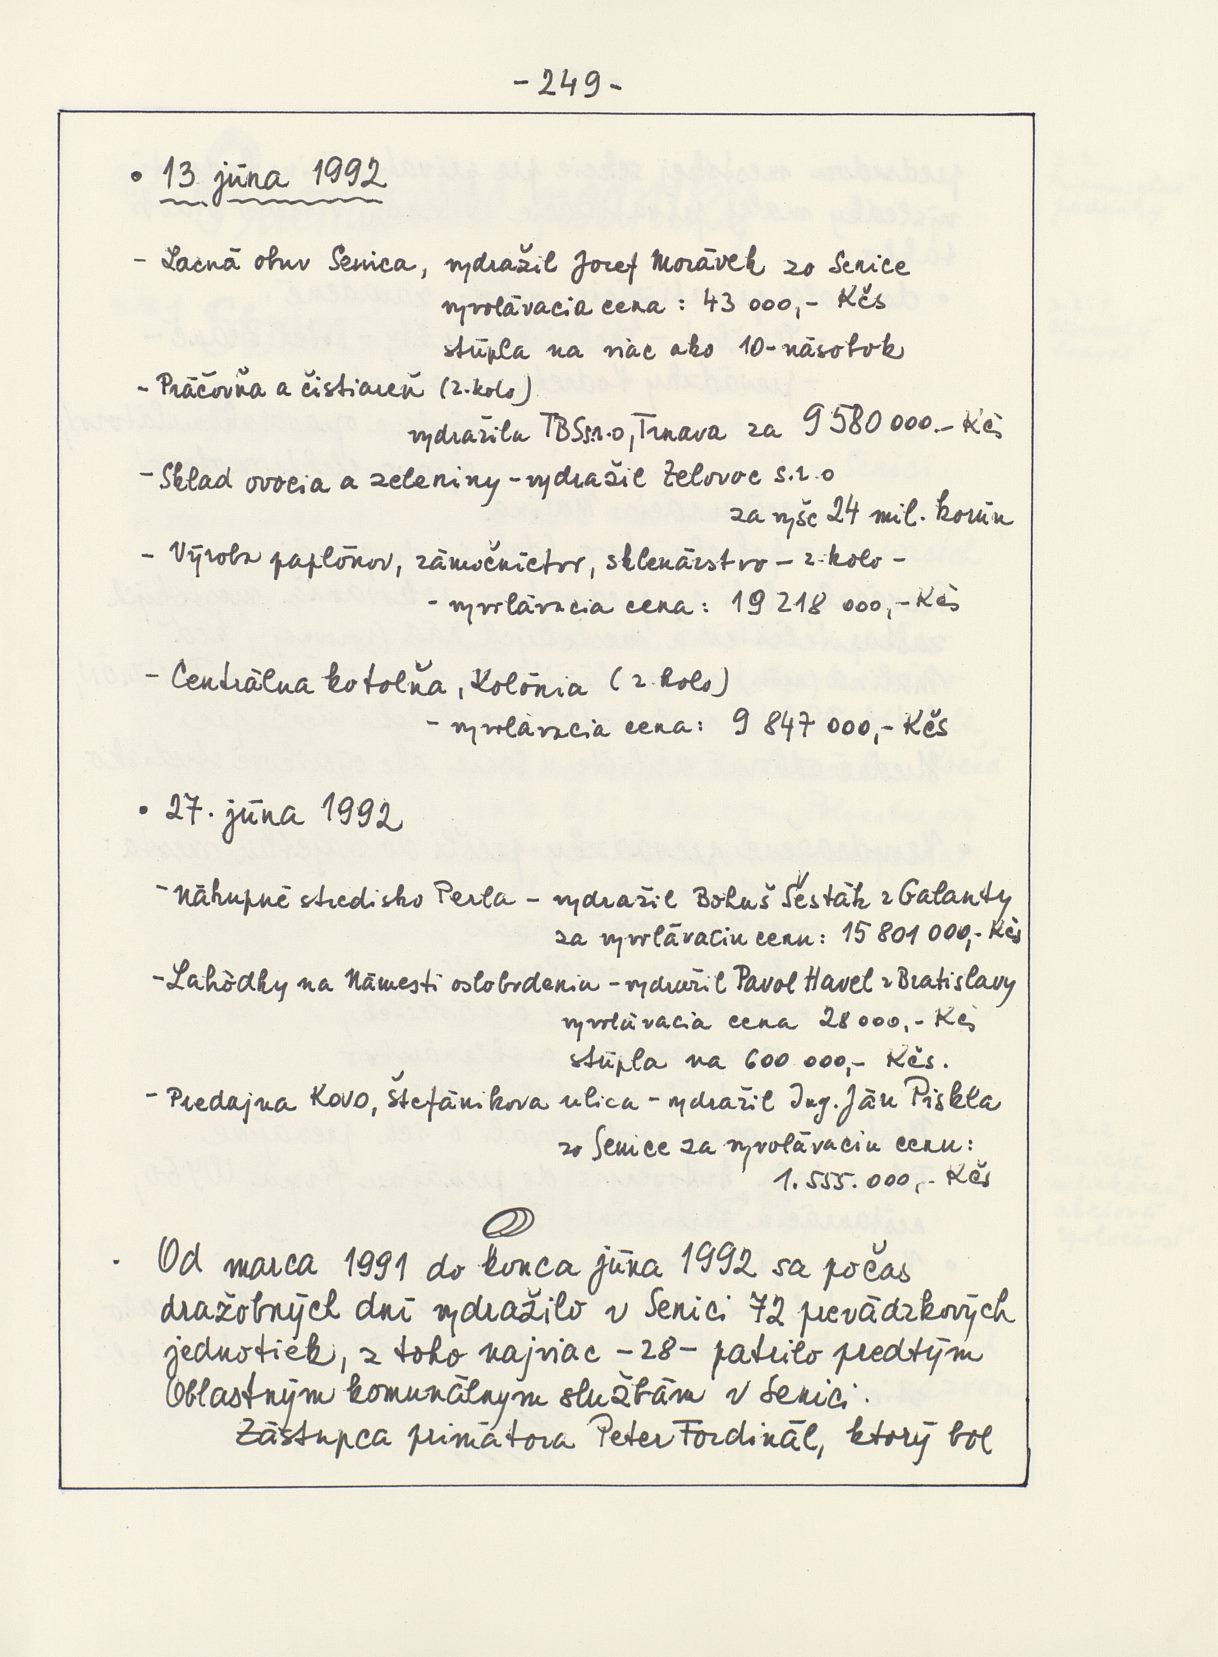 - 249 -
• 13. júna 1992
- Lacná obuv Senica, vydražil Jozef Morávek zo Senice
vyvolávacia cena : 43 000,- Kčs
stúpla na viac ako 10-násobok
- Práčovňa a čistiareň (2. kolo)
vydražila TBS s.r.o, Trnava za 9 580 000.- Kčs
- Sklad ovocia a zeleniny - vydražil Zelovoc s.r.o
za vyše 24 mil. korún
- Výroba paplónov, zámočníctvo, sklenárstvo - 2. kolo -
- vyvolávacia cena : 19 218 000,- Kčs
- Centrálna kotolňa, Kolónia (2. kolo)
- vyvolávacia cena : 9 847 000,- Kčs
• 27. júna 1992
- Nákupné stredisko Perla - vydražil Bohuš Šesták z Galanty
za vyvolávaciu cenu : 15 801 000,- Kčs
- Lahôdky na Námestí oslobodenia - vydražil Pavol Havel z Bratislavy
vyvolávacia cena 28 000,- Kčs
stúpla na 600 000,- Kčs.
- Predajna Kovo, Štefánikova ulica - vydražil Ing. Ján Piskla
zo Senice za vyvolávaciu cenu :
1.555.000,- Kčs
Od marca 1991 do konca júna 1992 sa počas
dražobných dní vydražilo v Senici 72 prevádzkových
jednotiek, z toho najviac - 28 - patrilo predtým
Oblastným komunálnym službám v Senici.
Zástupca primátora Peter Fordinál, ktorý bol